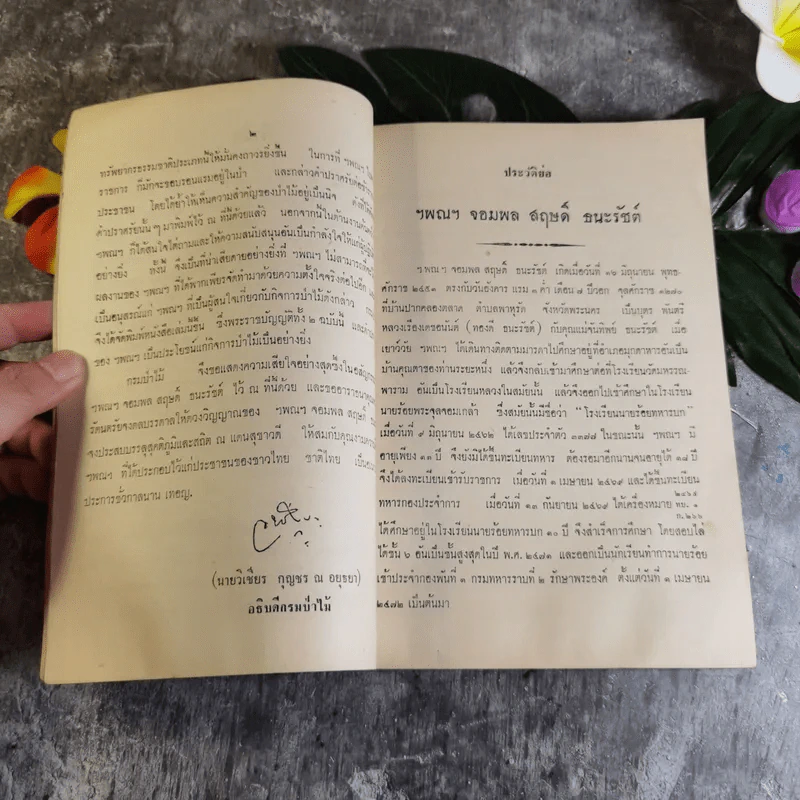 ๒
ทรัพยากรธรรมชาติประเภทนี้ให้มั่นคงถาวรยิ่งขึ้น ในการที่ ฯพณฯ
ราชการ ก็มักจะชอบรอนแรมอยู่ในป่า และกล่าวคำปราศรัยต่อ
ประชาชน โดยได้ย้ำให้เห็นความสำคัญของป่าไม้อยู่เป็นนิจ
คำปราศรัยนั้น ๆ มาพิมพ์ไว้ ณ ที่นี้ด้วยแล้ว นอกจากนั้นในด้านงาน
ฯพณฯ ก็ได้สนใจไต่ถามและให้ความสนับสนุนอันเป็นกำลังใจให้แก่
อย่างยิ่ง ทั้งนี้ จึงเป็นที่น่าเสียดายอย่างยิ่งที่ ฯพณฯ ไม่สามารถ
ผลงานของ ฯพณฯ ที่ได้พากเพียรจัดทำมาด้วยความตั้งใจจริงต่อไปอีก
เป็นอนุสรณ์แก่ ฯพณฯ ที่เป็นผู้สนใจเกี่ยวกับกิจการป่าไม้ดังกล่าว
จึงได้จัดพิมพ์หนังสือเล่มนี้ขึ้น ซึ่งพระราชบัญญัติทั้ง ๒ ฉบับนี้
ของ ฯพณฯ เป็นประโยชน์แก่กิจการป่าไม้เป็นอย่างยิ่ง
กรมป่าไม้ จึงขอแสดงความเสียใจอย่างสุดซึ้งใน
ฯพณฯ จอมพล สฤษดิ์ ธนะรัชต์ ไว้ ณ ที่นี้ด้วย และขออาราธนา
รัตนตรัยจงดลบรรดาลให้ดวงวิญญาณของ ฯพณฯ จอมพล สฤษดิ์
จงประสบบรรลุสุคติภูมิและสถิต ณ แดนสุขาวดี ให้สมกับคุณงามความ
ฯพณฯ ที่ได้ประกอบไว้แก่ประชาชนของชาวไทย ชาติไทย เป็น
ประการชั่วกาลนาน เทอญ.
(นายวิเชียร กุญชร ณ อยุธยา)
อธิบดีกรมป่าไม้
ประวัติย่อ
ฯพณฯ จอมพล สฤษดิ์ ธนะรัชต์
ฯพณฯ จอมพล สฤษดิ์ ธนะรัชต์ เกิดเมื่อวันที่ ๑๖ มิถุนายน พุทธ-
ศักราช ๒๔๕๑ ตรงกับวันอังคาร แรม ๓ ค่ำ เดือน ๗ ปีวอก จุลศักราช ๑๒๗๐
ที่บ้านปากคลองตลาด ตำบลพาหุรัด จังหวัดพระนคร เป็นบุตร พันตรี
หลวงเรืองเดชอนันต์ (ทองดี ธนะรัชต์) กับคุณแม่จันทิพย์ ธนะรัชต์ เมื่อ
เยาว์วัย ฯพณฯ ได้เดินทางติดตามมารดาไปศึกษาอยู่ที่อำเภอมุกดาหารอันเป็น
บ้านคุณตาของท่านระยะหนึ่ง แล้วจึงกลับเข้ามาศึกษาต่อที่โรงเรียนวัดมหรรณ-
พาราม อันเป็นโรงเรียนหลวงในสมัยนั้น แล้วจึงออกไปเข้าศึกษาในโรงเรียน
นายร้อยพระจุลจอมเกล้า ซึ่งสมัยนั้นมีชื่อว่า "โรงเรียนนายร้อยทหารบก"
เมื่อวันที่ ๙ มิถุนายน ๒๔๖๒ ได้เลขประจำตัว ๓๓๗๗ ในขณะนั้น ฯพณฯ มี
อายุเพียง ๑๑ ปี จึงยังมิได้ขึ้นทะเบียนทหาร ต้องรอมาอีกนานจนอายุได้ ๑๘ ปี
จึงได้ลงทะเบียนเข้ารับราชการ เมื่อวันที่ ๑ เมษายน ๒๔๖๙ และได้ขึ้นทะเบียน
ทหารกองประจำการ เมื่อวันที่ ๑๓ กันยายน ๒๔๖๙ ได้เครื่องหมาย ๒๔๖๕ ทบ. ๑ ก.๒๖๖
ได้ศึกษาอยู่ในโรงเรียนนายร้อยทหารบก ๑๐ ปี จึงสำเร็จการศึกษา โดยสอบไล่
ได้ชั้น ๖ อันเป็นชั้นสูงสุดในปี พ.ศ. ๒๔๗๑ และออกเป็นนักเรียนทำการนายร้อย
เข้าประจำกองพันที่ ๑ กรมทหารราบที่ ๒ รักษาพระองค์ ตั้งแต่วันที่ ๑ เมษายน
๒๔๗๒ เป็นต้นมา